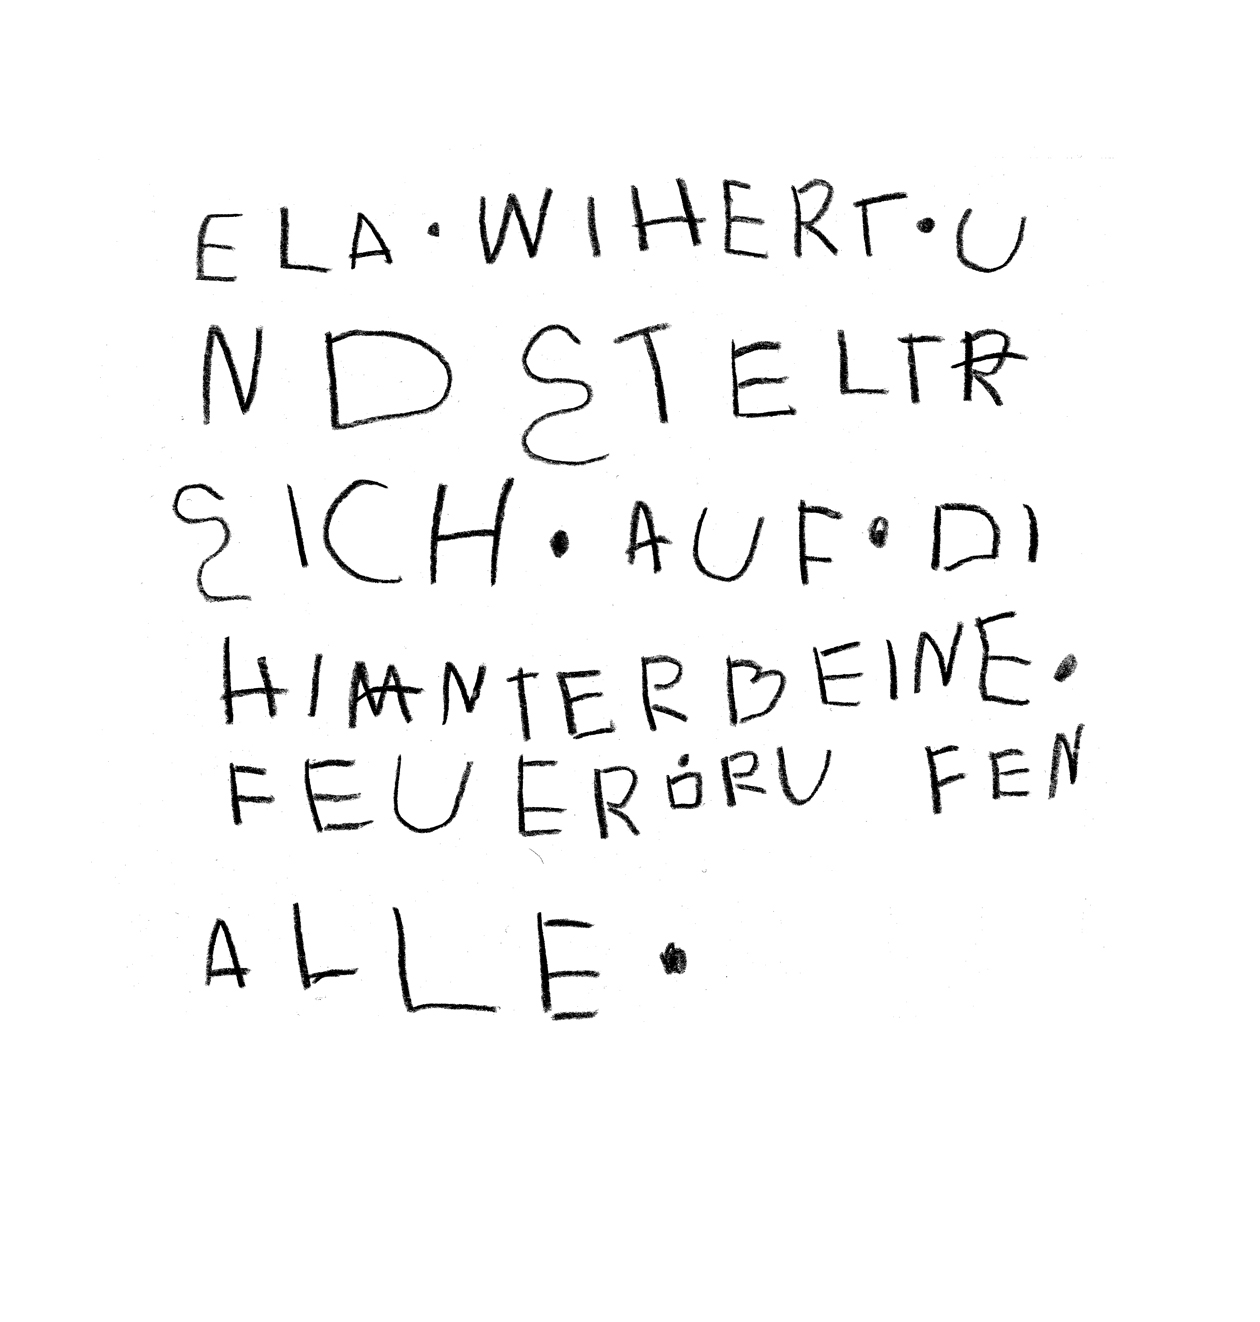 ELA · WIHERT · U
ND STELT
SICH · AUF · DI
HINTERBEINE ·
FEUER ȮRU FEN
ALLE ·